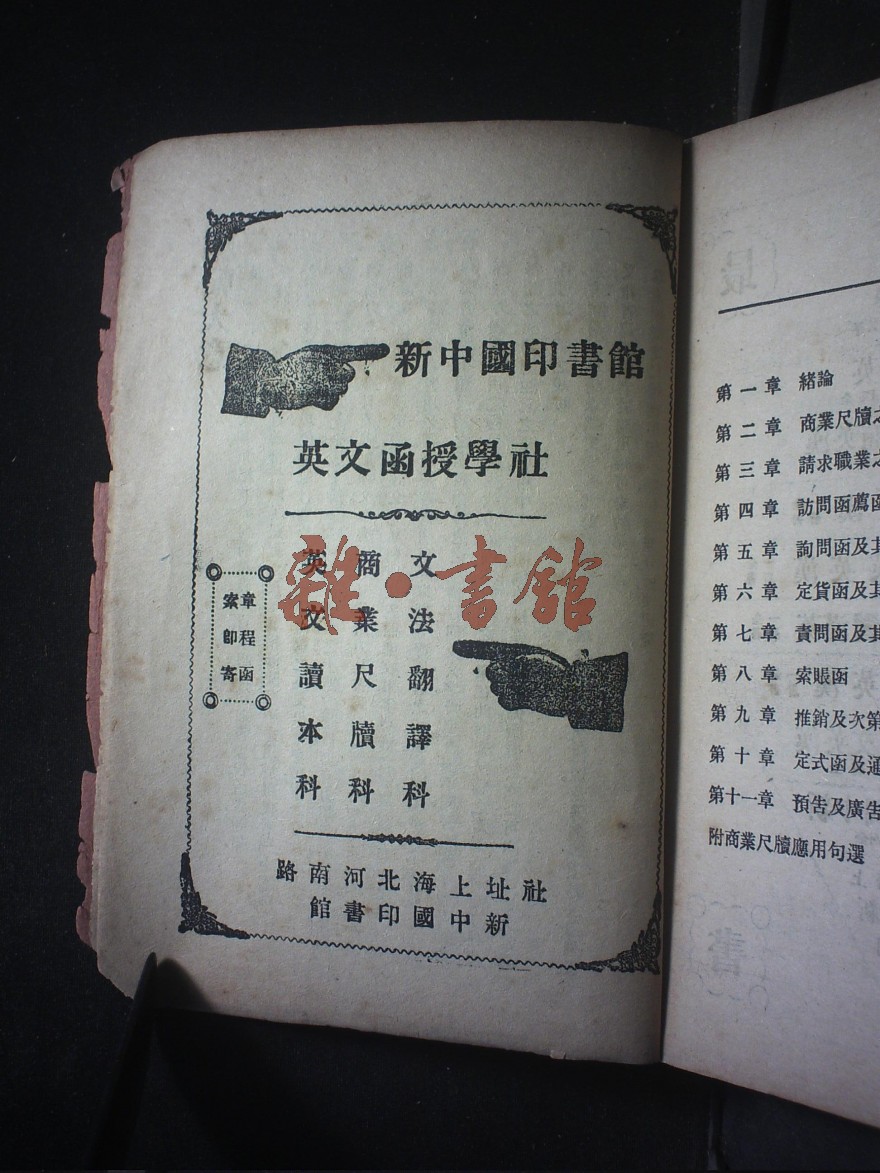 新中國印書館
英文函授學社
文法翻譯科
商業尺牘科
英文讀本科
章程函
索即寄
社址上海北河南路
新中國印書館
雜·書館
第一章 緒論
第二章 商業尺牘之
第三章 請求職業之
第四章 訪問函薦函
第五章 詢問函及其
第六章 定貨函及其
第七章 責問函及其
第八章 索賬函
第九章 推銷及次第
第十章 定式函及通
第十一章 預告及廣告
附商業尺牘應用句選